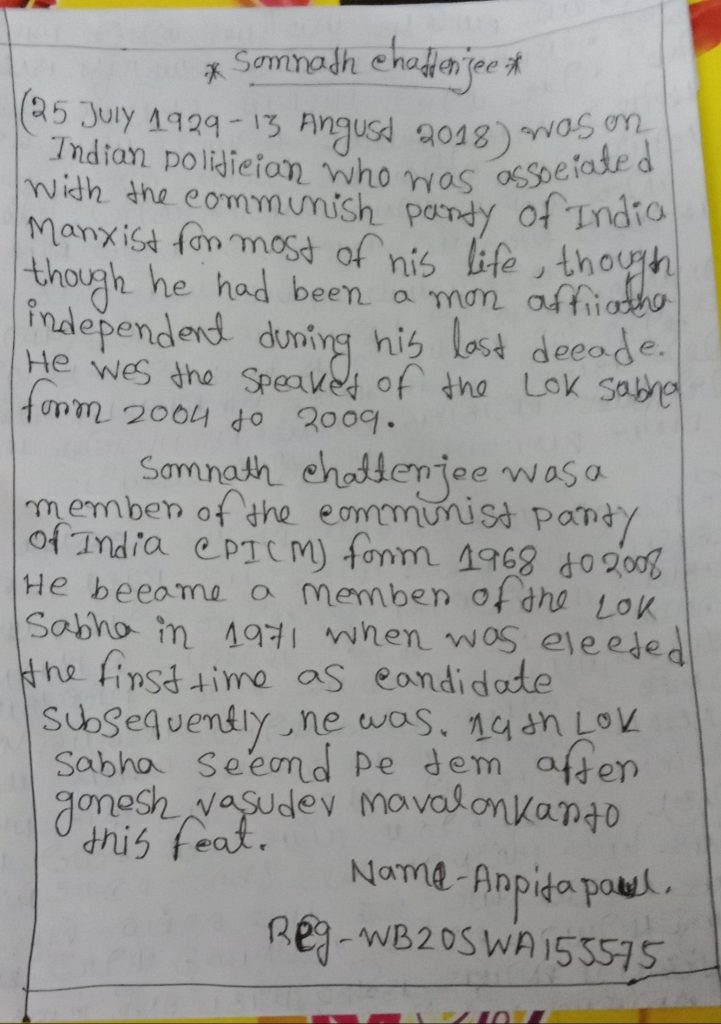 * Somnath chatterjee *
(25 July 1929 - 13 Angust 2018) was on
Indian politician who was associated
with the communish party of India
Marxist for most of his life, though
though he had been a mon affiiatha
independent during his last decade.
He wes the speaker of the Lok Sabha
form 2004 to 2009.
Somnath chatterjee was a
member of the communist party
of India CPI(M) form 1968 to 2008
He became a member of the Lok
Sabha in 1971 when was elected
the first time as candidate
subsequently, he was. 14th Lok
Sabha second pe tem after
gonesh vasudev mavalonkar to
this feat.
Name - Arpita paul.
Reg - WB20SWA155575